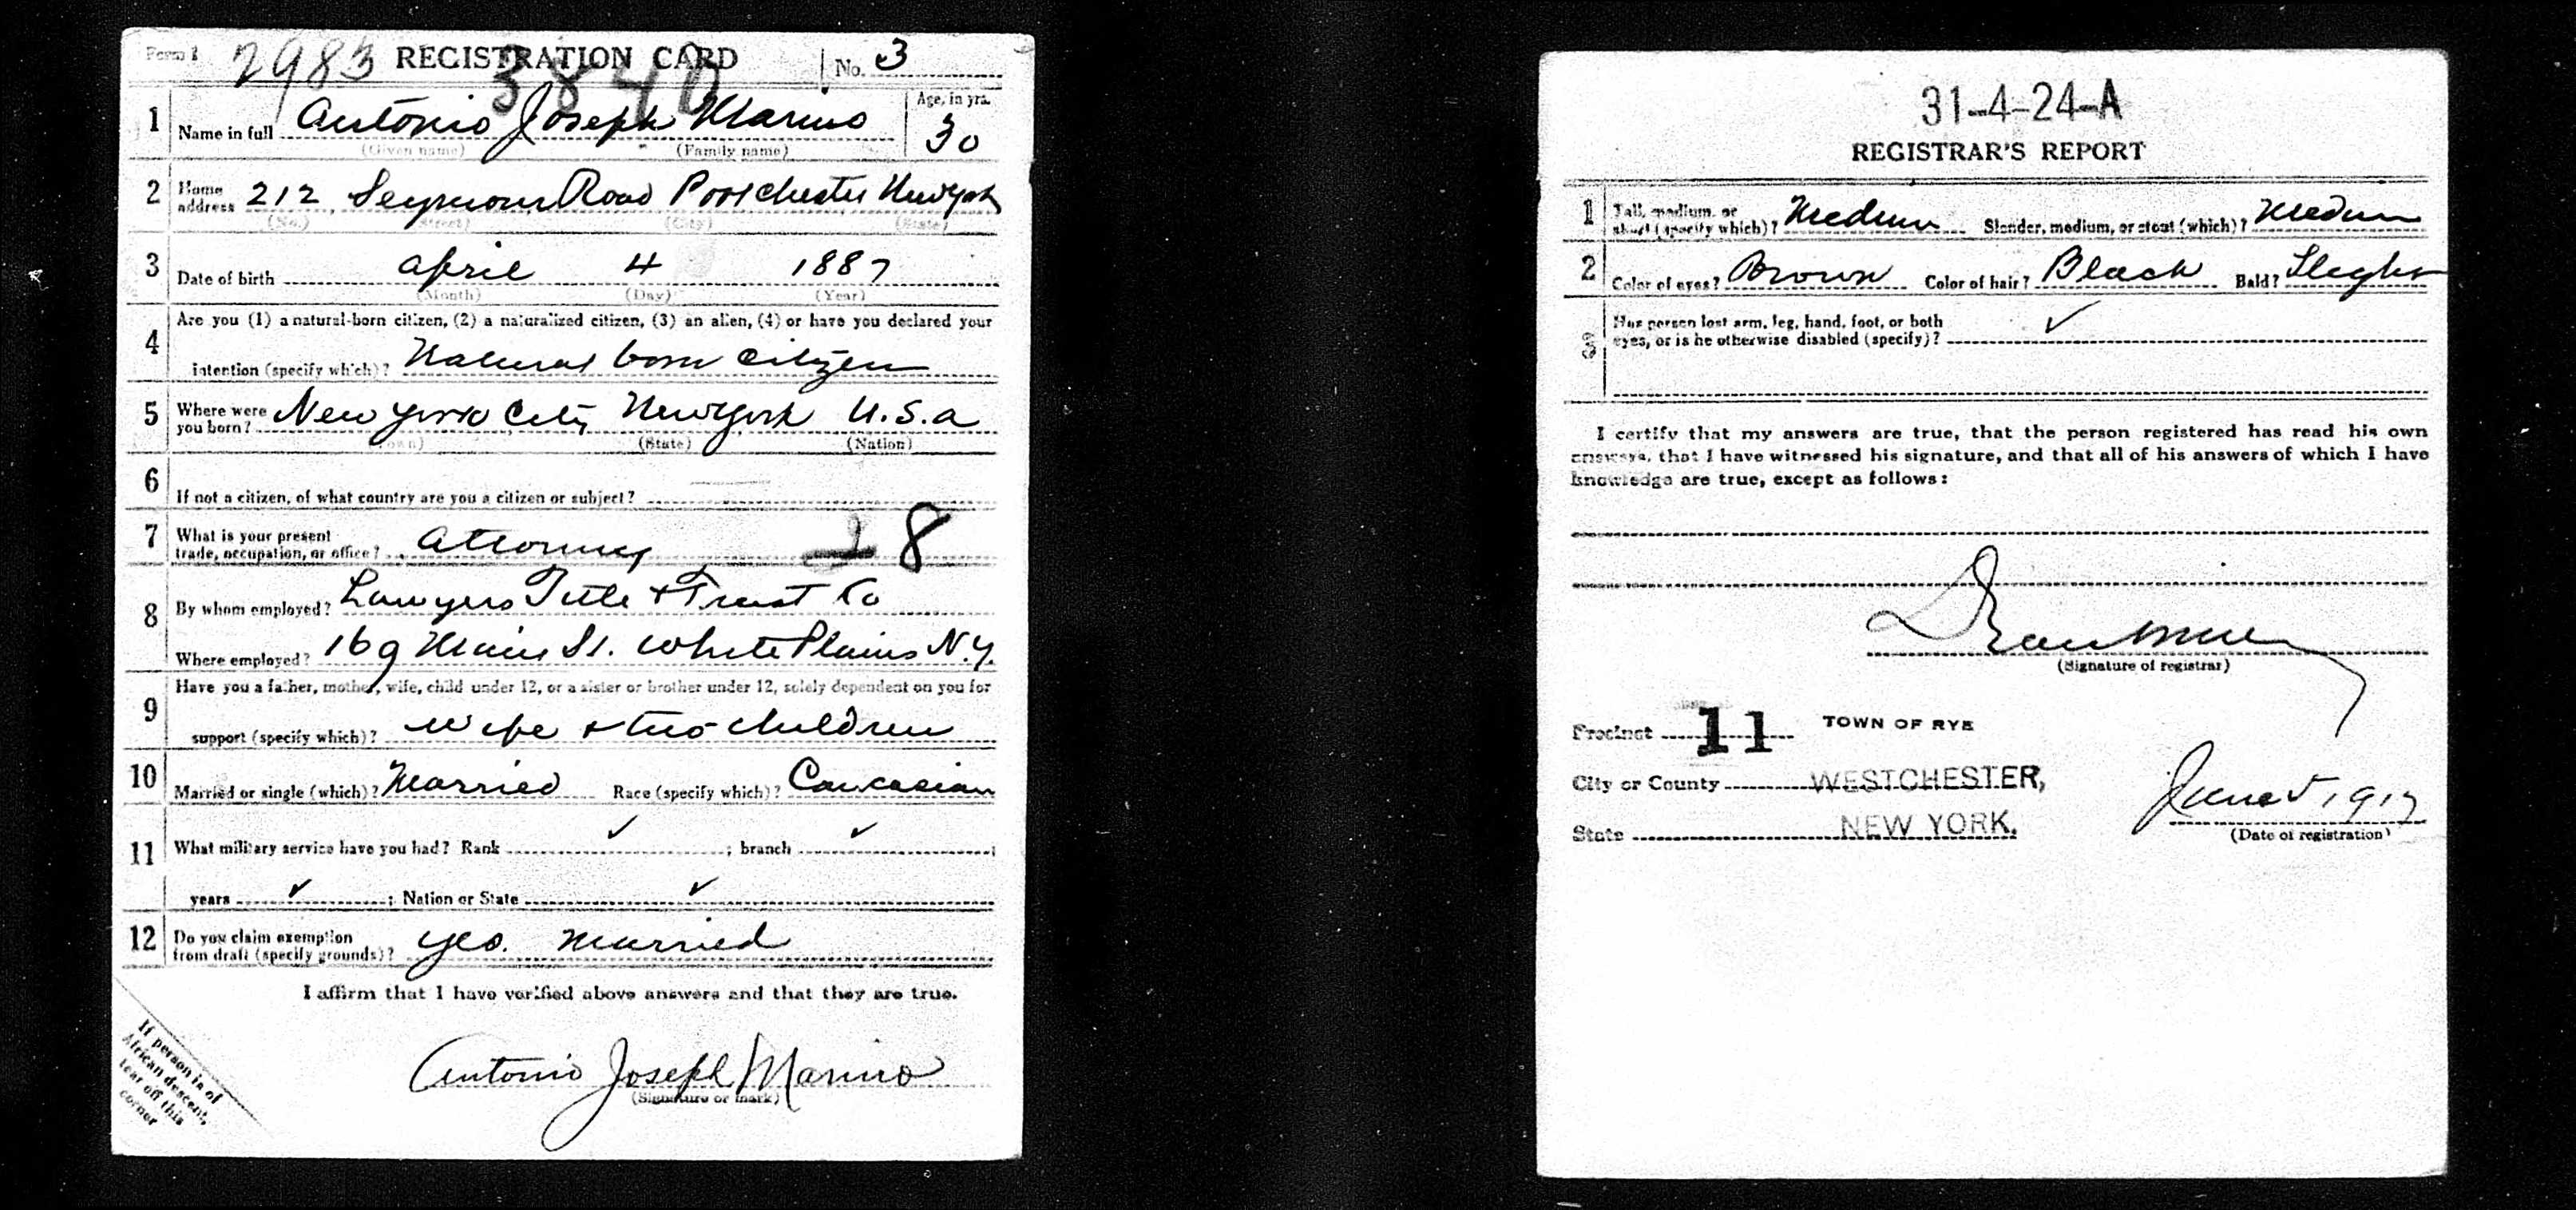 Form 1 2983 REGISTRATION CARD No. 3
3840
1 Name in full Antonio Joseph Marino Age, in yrs. 30
(Given name) (Family name)
2 Home address 212 Seymour Road Portchester New York
(No.) (Street) (City) (State)
3 Date of birth April 4 1887
(Month) (Day) (Year)
4 Are you (1) a natural-born citizen, (2) a naturalized citizen, (3) an alien, (4) or have you declared your
intention (specify which)? Natural born citizen
5 Where were you born? New York City New York U.S.a
(Town) (State) (Nation)
6 If not a citizen, of what country are you a citizen or subject?
7 What is your present trade, occupation, or office? Attorney 8
8 By whom employed? Lawyers Title + Trust Co
Where employed? 169 Main St. White Plains N.Y.
9 Have you a father, mother, wife, child under 12, or a sister or brother under 12, solely dependent on you for
support (specify which)? Wife + two children
10 Married or single (which)? Married Race (specify which)? Caucasian
11 What military service have you had? Rank ✓ ; branch ✓ ;
years ✓ ; Nation or State ✓
12 Do you claim exemption from draft (specify grounds)? Yes. Married
I affirm that I have verified above answers and that they are true.
Antonio Joseph Marino
(Signature or mark)
If person is of
African descent,
tear off this
corner
31-4-24-A
REGISTRAR'S REPORT
1 Tall, medium, or short (specify which)? Medium Slender, medium, or stout (which)? Medium
2 Color of eyes? Brown Color of hair? Black Bald? Slight
3 Has person lost arm, leg, hand, foot, or both
eyes, or is he otherwise disabled (specify)? ✓
I certify that my answers are true, that the person registered has read his own
answers, that I have witnessed his signature, and that all of his answers of which I have
knowledge are true, except as follows:
(Signature of registrar)
Precinct 11 TOWN OF RYE
City or County WESTCHESTER,
State NEW YORK.
June 5, 1917
(Date of registration)